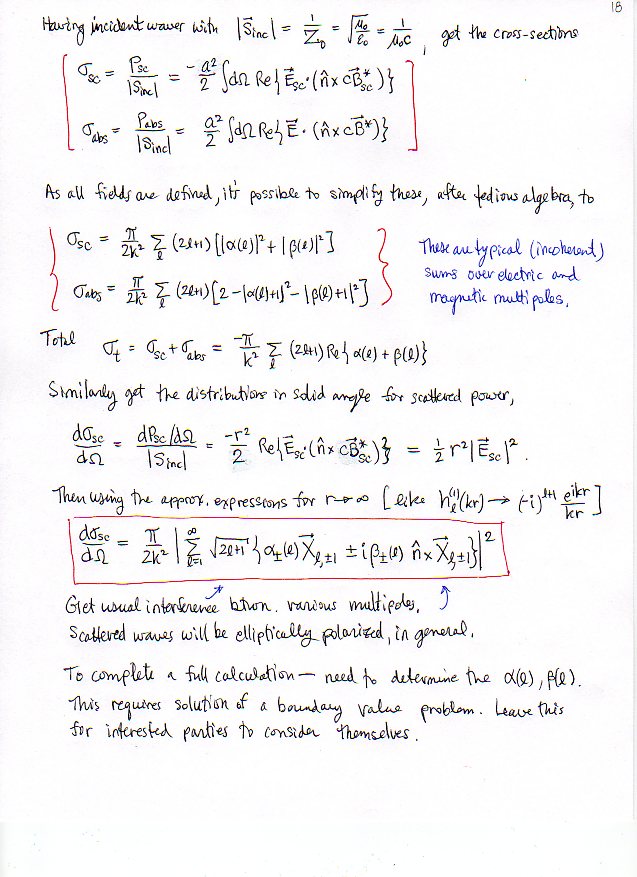 18
Having incident waves with |S⃗inc| = 1/Z₀ = √(μ₀/ε₀) = 1/(μ₀c), get the cross-sections
σsc = Psc/|S⃗inc| = -a²/2 ∫dΩ Re{E⃗sc·(n̂×cB⃗*sc)}
σabs = Pabs/|S⃗inc| = a²/2 ∫dΩ Re{E⃗·(n̂×cB⃗*)}
As all fields are defined, it's possible to simplify these, after tedious algebra, to
σsc = π/2k² Σ_ℓ (2ℓ+1)[|α(ℓ)|²+|β(ℓ)|²]
σabs = π/2k² Σ_ℓ (2ℓ+1)[2-|α(ℓ)+1|²-|β(ℓ)+1|²]
These are typical (incoherent)
sums over electric and
magnetic multipoles.
Total σt = σsc + σabs = -π/k² Σ_ℓ (2ℓ+1) Re{α(ℓ)+β(ℓ)}
Similarly get the distributions in solid angle for scattered power,
dσsc/dΩ = dPsc/dΩ/|S⃗inc| = -r²/2 Re{E⃗sc·(n̂×cB⃗*sc)} = ½ r²|E⃗sc|².
Then using the approx. expressions for r→∞ [like hℓ⁽¹⁾(kr) → (-i)^ℓ+1 e^ikr/kr]
dσsc/dΩ = π/2k² |Σ_ℓ=1^∞ √2ℓ+1 {α±(ℓ)X⃗ℓ,±1 ± iβ±(ℓ) n̂×X⃗ℓ,±1}|²
Get usual interference btwn. various multipoles.
Scattered waves will be elliptically polarized, in general.
To complete a full calculation — need to determine the α(ℓ), β(ℓ).
This requires solution of a boundary value problem. Leave this
for interested parties to consider themselves.